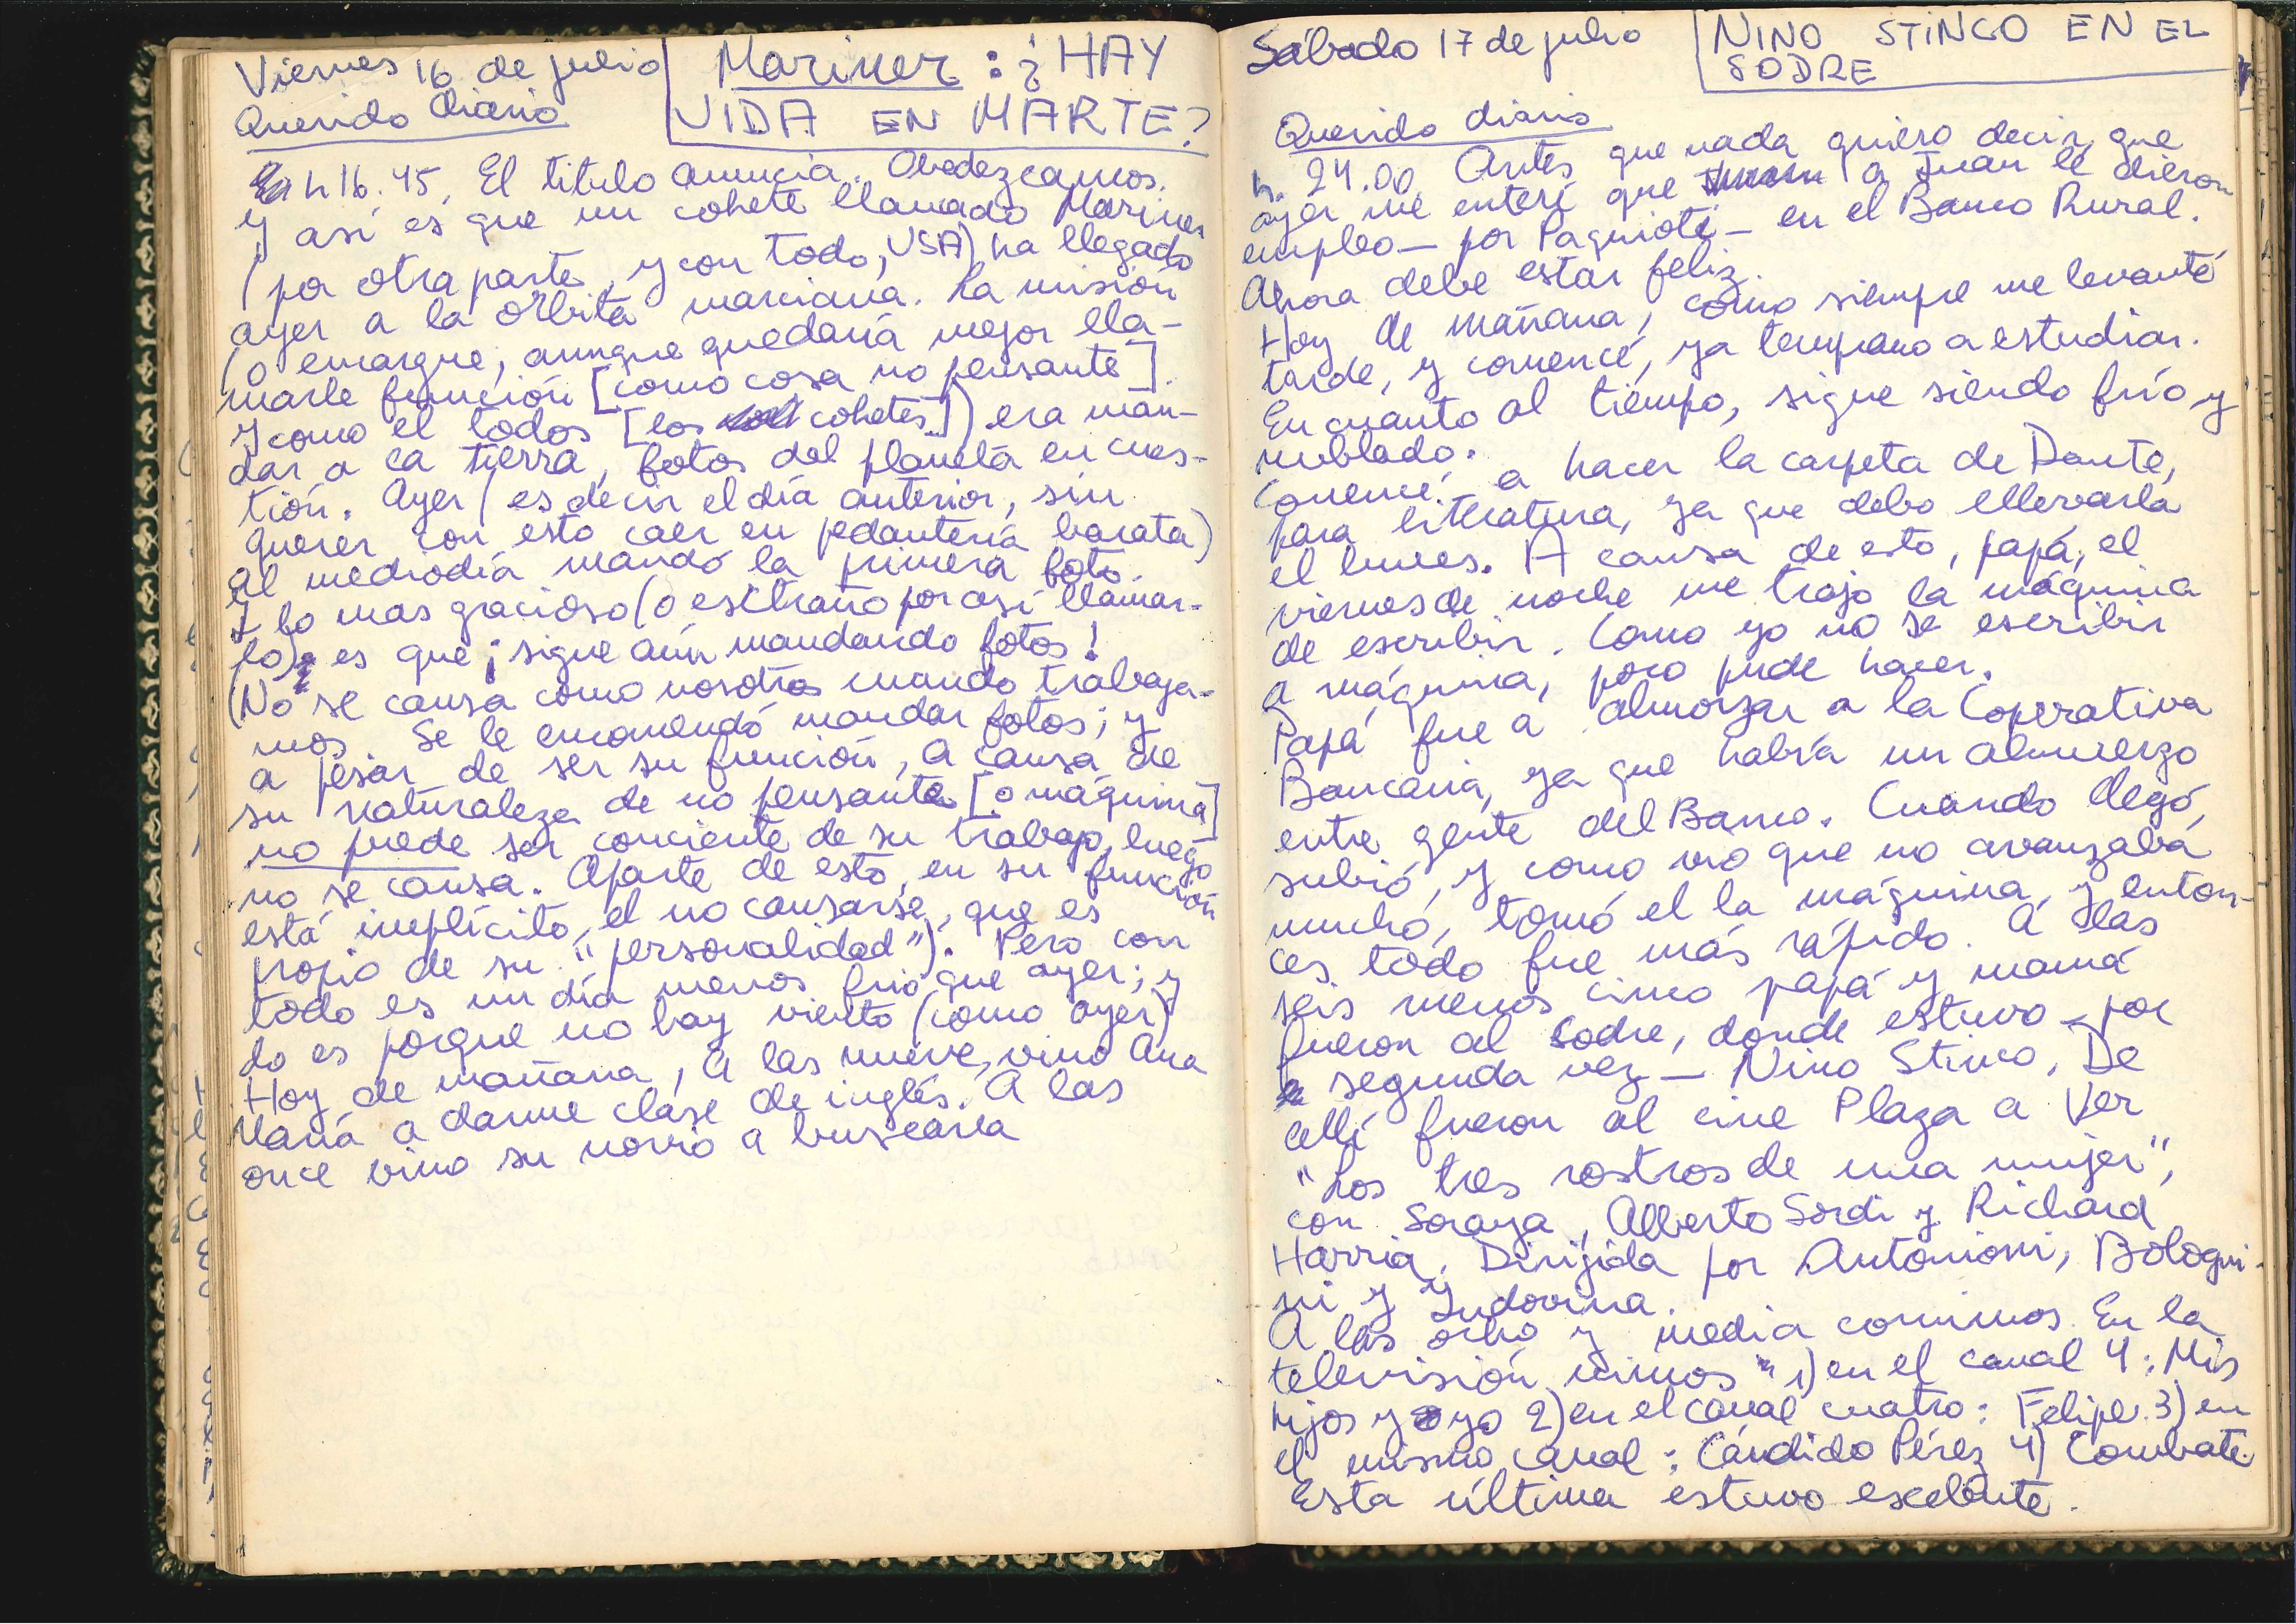 Viernes 16 de julio
Querido Diario
Mariner : ¿HAY
VIDA EN MARTE?
h 16.45. El titulo anuncia. Obedezcamos.
Y así es que un cohete llamado Mariner
(por otra parte, y con todo, USA) ha llegado
ayer a la orbita marciana. La misión
(o encargue, aunque quedaría mejor lla-
marle función [como cosa no pensante].
Y como el todos [los cohetes]) era man-
dar a la tierra, fotos del planeta en cues-
tión. Ayer (es decir el día anterior, sin
querer con esto caer en pedantería barata)
al mediodía mandó la primera foto.
Y lo mas gracioso (o esxtraño por así llamar-
lo) es que ¡sigue aún mandando fotos!
(No se cansa como nosotros cuando trabaja-
mos. Se le encomendó mandar fotos; y
a pesar de ser su función, a causa de
su naturaleza de no pensante [o máquina]
no puede ser conciente de su trabajo, luego
no se cansa. Aparte de esto, en su función
está implícito, el no cansarse, que es
propio de su "personalidad"). Pero con
todo es un día menos frío que ayer; y
do es porque no hay viento (como ayer)
Hoy de mañana, a las nueve, vino Ana
María a darme clase de inglés. A las
once vino su novio a buscarla
Sábado 17 de julio
NINO STINCO EN EL
SODRE
Querido diario
h. 24.00. Antes que nada quiero decir, que
ayer me enteré que a Juan le dieron
empleo – por Paquioti – en el Banco Rural.
Ahora debe estar feliz.
Hoy de mañana, como siempre me levanté
tarde, y comencé, ya temprano a estudiar.
En cuanto al tiempo, sigue siendo frío y
nublado.
Comencé a hacer la carpeta de Dante,
para literatura, ya que debo ellevarla
el lunes. A causa de esto, papá, el
viernes de noche me trajo la máquina
de escribir. Como yo no se escribir
a máquina, poco pude hacer.
Papá fue a almorzar a la Coperativa
Bancaria, ya que habría un almuerzo
entre gente del Banco. Cuando llegó,
subió, y como vio que no avanzaba
mucho, tomó el la máquina, y enton-
ces todo fue más rápido. A las
seis menos cinco papá y mamá
fueron al Sodre, donde estuvo – por
segunda vez – Nino Stinco. De
allí fueron al cine Plaza a ver
"Los tres rostros de una mujer",
con Soraya, Alberto Sordi y Richard
Harris. Dirijida por Antonioni, Bologni-
ni y Indovina.
A las ocho y media comimos. En la
televisión vimos 1) en el canal 4: Mis
hijos y yo 2) en el canal cuatro: Felipe 3) en
el mismo canal: Cándido Pérez 4) Combate.
Esta última estuvo escelente.